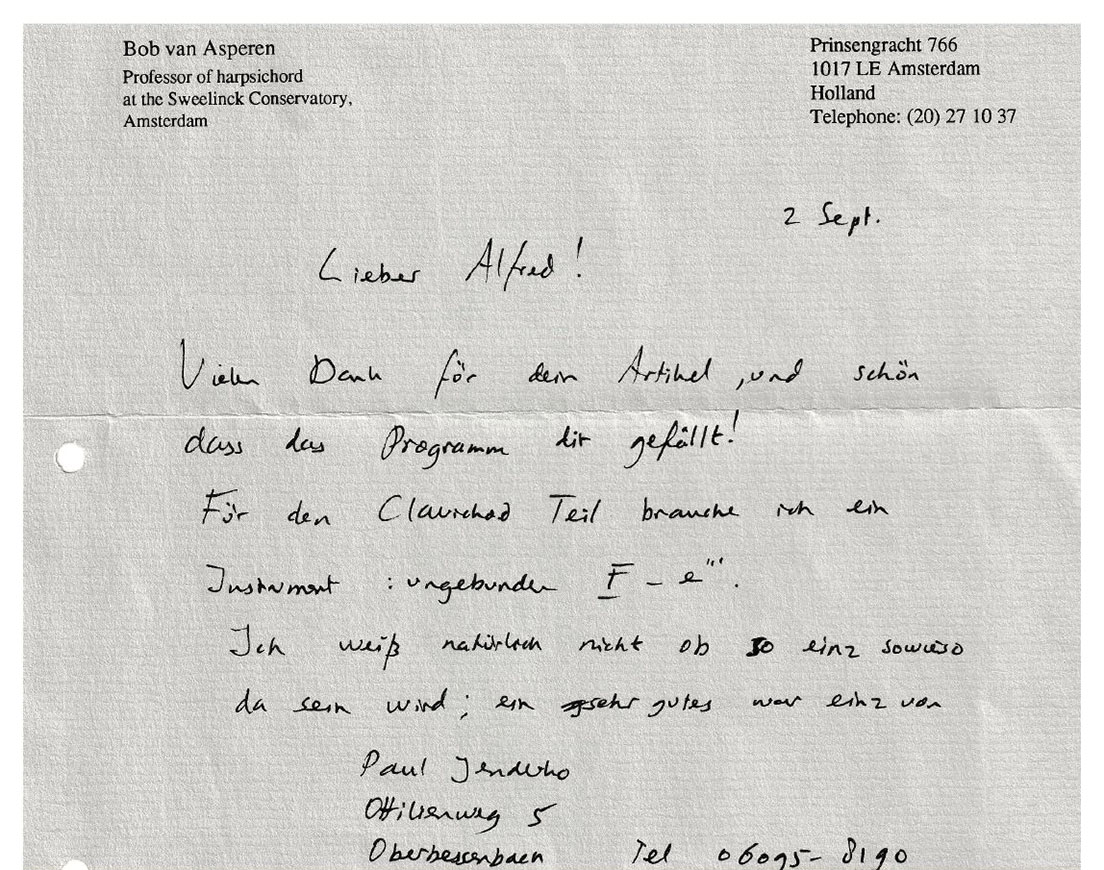 Bob van Asperen
Professor of harpsichord
at the Sweelinck Conservatory,
Amsterdam
Prinsengracht 766
1017 LE Amsterdam
Holland
Telephone: (20) 27 10 37
2 Sept.
Lieber Alfred!
Vielen Dank für dein Artikel, und schön
dass das Programm dir gefällt!
Für den Clavichod Teil brauche ich ein
Instrument : ungebunden F – e'''.
Ich weiß natürlich nicht ob so einz sowieso
da sein wird; ein sehr gutes war einz von
Paul Jenderko
Ottilienweg 5
Oberbessenbach Tel 06095-8190